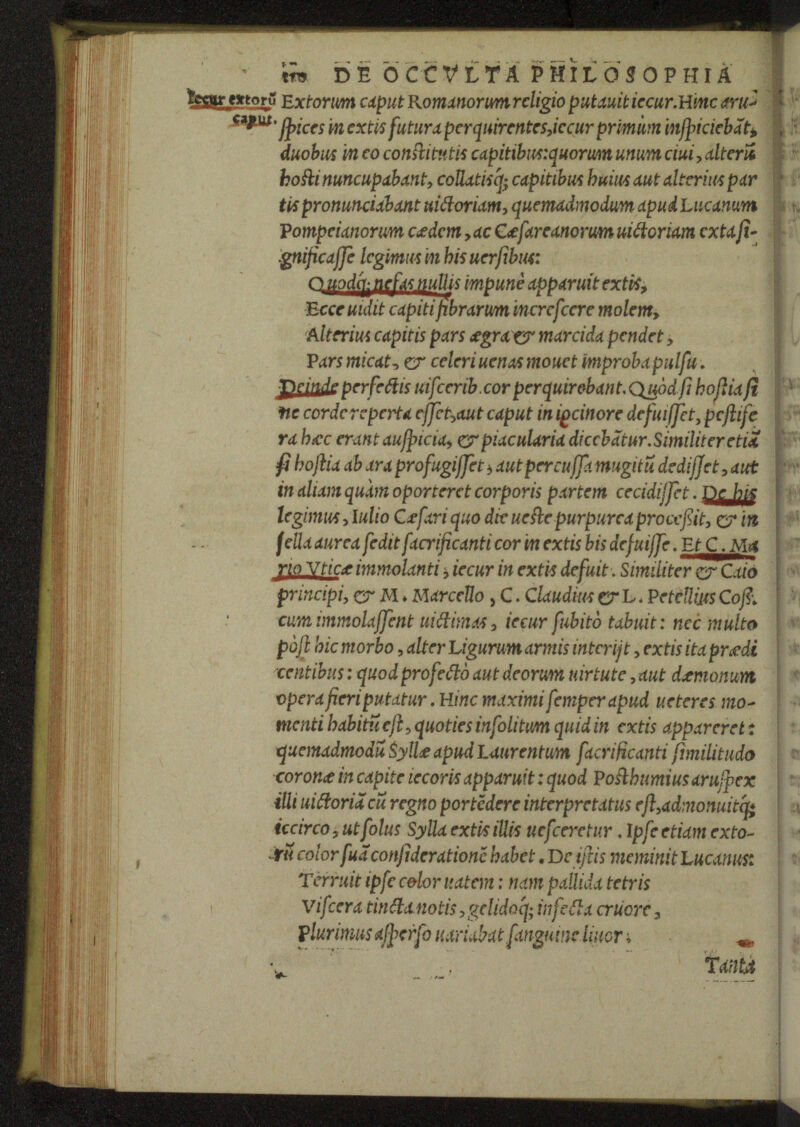 DE OCCVLTA PHILOSOPHIA
Iecur extorũ
caput.
Extorum caput Romanorum religio putauit iecur. Hinc aru-
ſpices in extis futura perquirentes, iecur primùm inſpiciebãt,
duobus in eo conſtitutis capitibus: quorum unum ciui, alterũ
hoſti nuncupabant, collatisq; capitibus huius aut alterius par
tis pronunciabant uictoriam, quemadmodum apud Lucanum
Pompeianorum cædem, ac Cæſareanorum uictoriam exta ſi-
gnificaſſe legimus in his uerſibus:
Quodq; nefas nullis impunè apparuit extis,
Ecce uidit capiti fibrarum increſcere molem,
Alterius capitis pars ægra & marcida pendet,
Pars micat, & celeri uenas mouet improba pulſu.
Deinde perfectis uiſcerib. cor perquirebant. Quòd ſi hoſtia ſi
ne corde reperta eſſet, aut caput in iocinore defuiſſet, peſtife
ra hæc erant auſpicia, & piacularia dicebãtur. Similiter etiã
ſi hoſtia ab ara profugiſſet, aut percuſſa mugitũ dediſſet, aut
in aliam quàm oporteret corporis partem cecidiſſet. De his
legimus, Iulio Cæſari quo die ueſte purpurea proceſſit, & in
ſella aurea ſedit ſacrificanti cor in extis bis defuiſſe. Et C. Ma
rio Vticæ immolanti, iecur in extis defuit. Similiter & Caio
principi, & M. Marcello, C. Claudius & L. Petellius Coſſ.
cum immolaſſent uictimas, iecur ſubitò tabuit: nec multo
pòſt hic morbo, alter Ligurum armis interijt, extis ita prædi
centibus: quod profectò aut deorum uirtute, aut dæmonum
opera fieri putatur. Hinc maximi ſemper apud ueteres mo-
menti habitũ eſt, quoties inſolitum quid in extis appareret:
quemadmodũ Syllæ apud Laurentum ſacrificanti ſimilitudo
coronæ in capite iecoris apparuit: quod Poſthumius aruſpex
illi uictoriã cũ regno portẽdere interpretatus eſt, admonuitq;
iccirco, ut ſolus Sylla extis illis ueſceretur. Ipſe etiam exto-
rũ color ſuã conſiderationẽ habet. De iſtis meminit Lucanus:
Terruit ipſe color uatem: nam pallida tetris
Viſcera tincta notis, gelidoq; infecta cruore,
Plurimus aſperſo uariabat ſanguine liuor,
Tanta